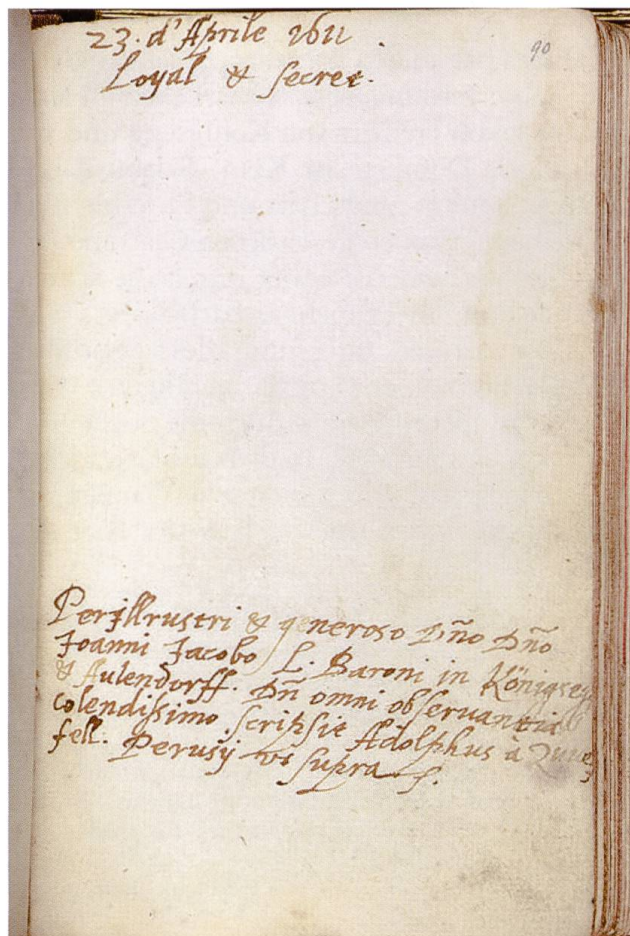 23. d'Aprile 1611
90
Loyal & secret.
Perjllrustri & generoso Dño Dño
Joanni Jacobo L. Baroni in Königseg
& Aulendorff. Dñ omni observantia
colendissimo scripsit Adolphus à
fell. Perusij ut supra